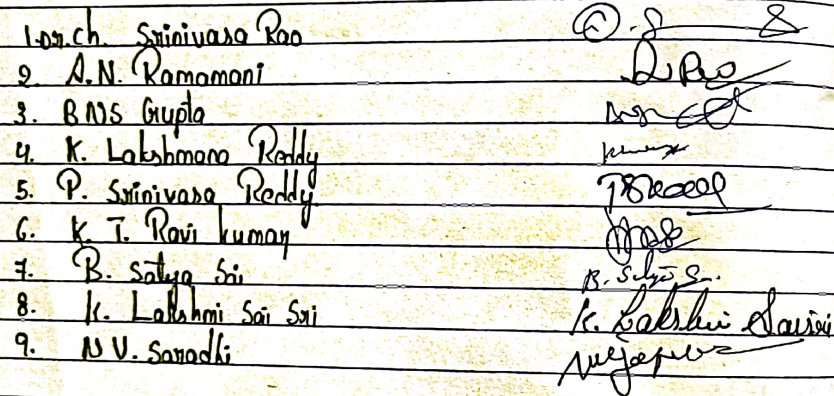 1. Dr. ch. Srinivasa Rao
2. A.N. Ramamani
3. BNS Gupta
4. K. Lakshmana Reddy
5. P. Srinivasa Reddy
6. K. T. Ravi kumar
7. B. Satya Sri B. Satya S.
8. K. Lakshmi Sai Sri K. Lakshmi Saisri
9. N V. Saradhi